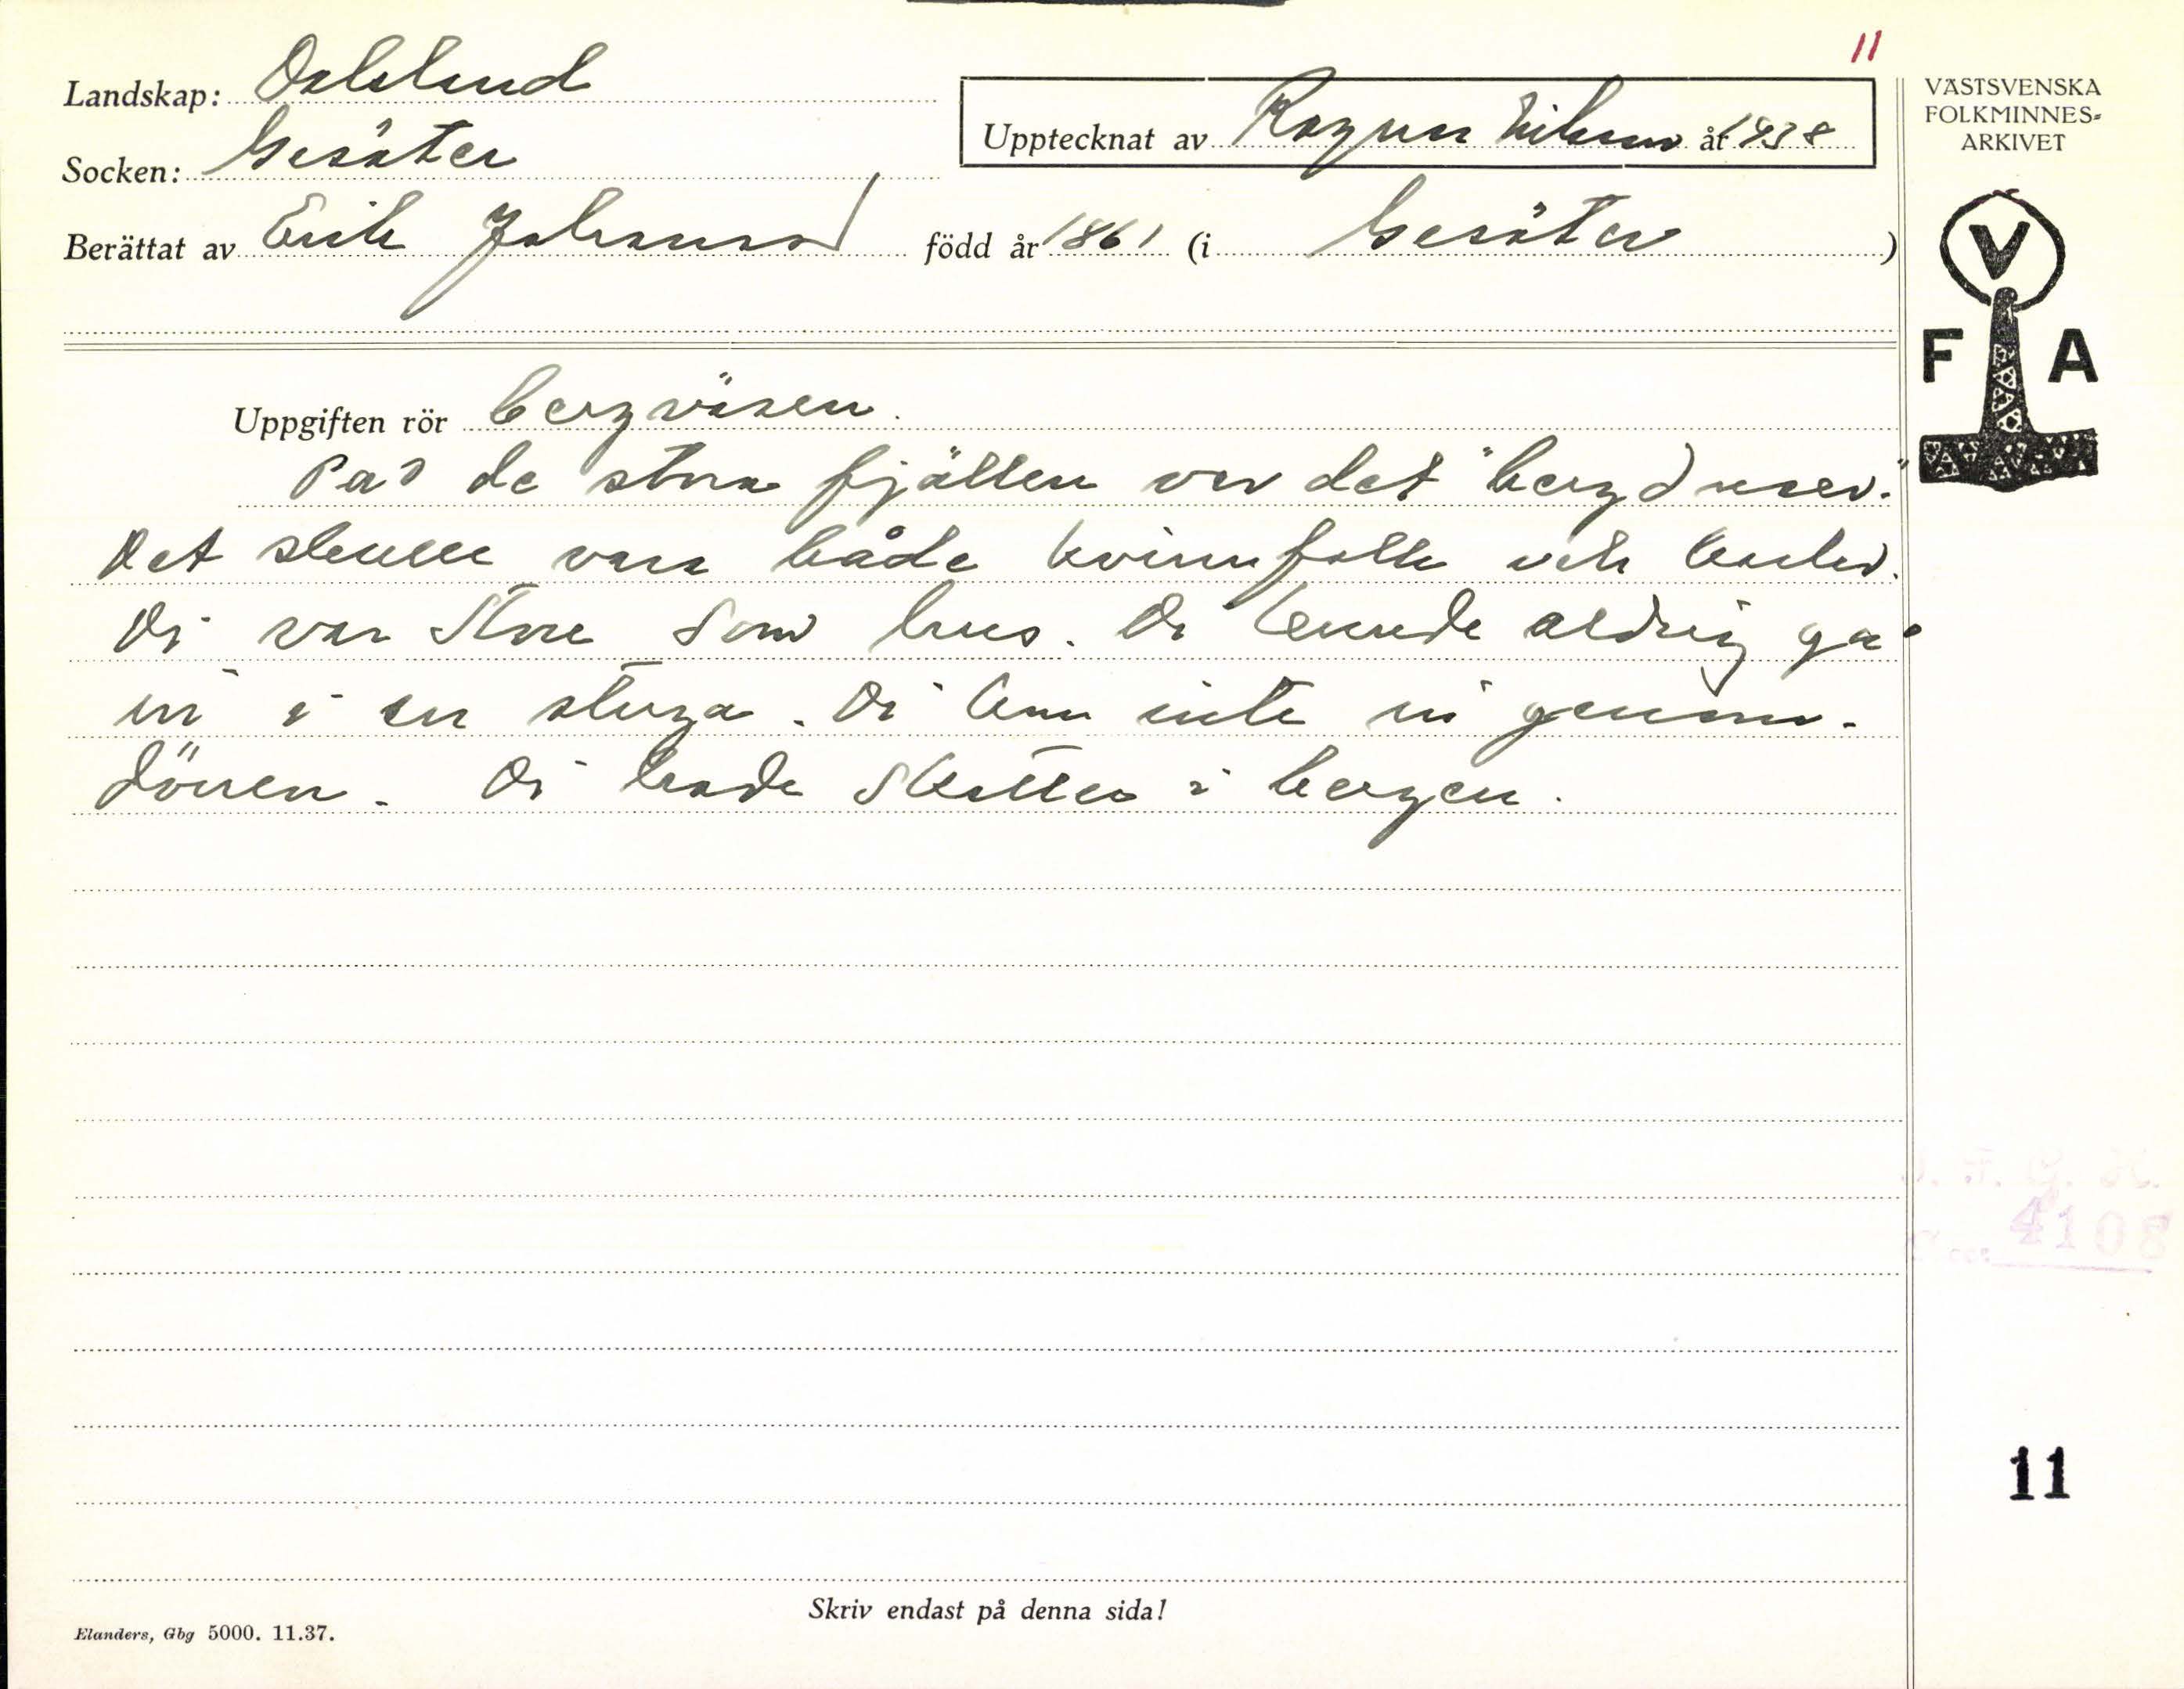 11
Landskap: Dalsland
Upptecknat av Ragnar Nilsson år 1938
VÄSTSVENSKA
FOLKMINNES-
ARKIVET
Socken: Gesäter
Berättat av Erik Johansson född år 1861 (i Gesäter)
V
F A
Uppgiften rör bergväsen.
På de stora fjällen var det "bergdruser."
Det skulle vara både kvinnfolk och karlar.
Di var store som hus. Di kunde aldrig gå
in i en stuga. Di kom inte in genom-
dörren. Di hade skatter i bergen.
4108
11
Skriv endast på denna sida!
Elanders, Gbg 5000. 11.37.